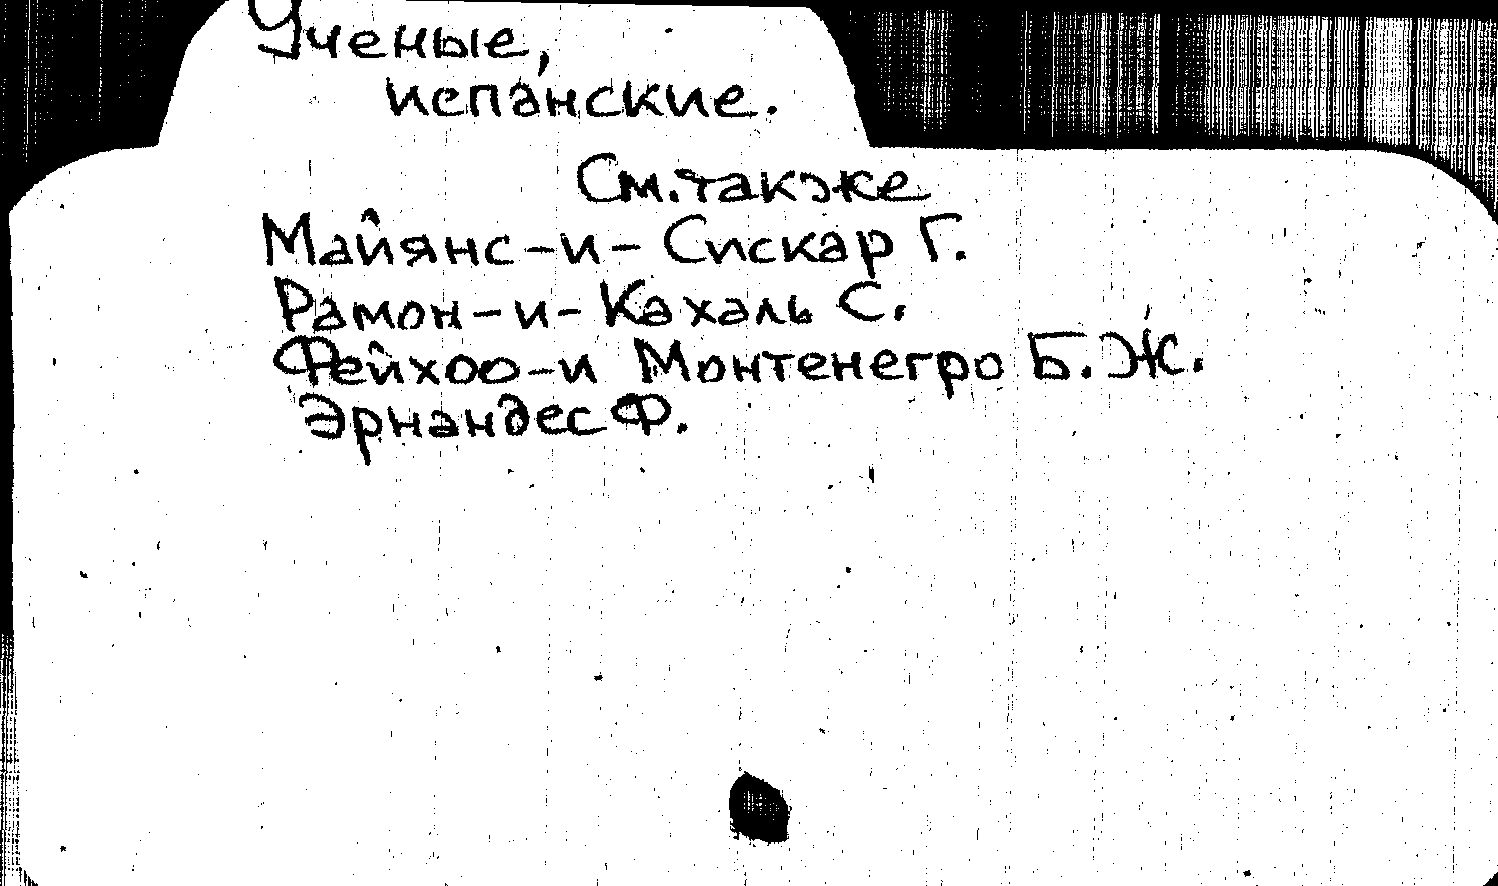 Ученые,
испанские.
См. также
Майянс-и-Сискар Г.
Рамон-и-Кахаль С.
Фейхоо-и Монтенегро Б. Ж.
Эрнандес Ф.